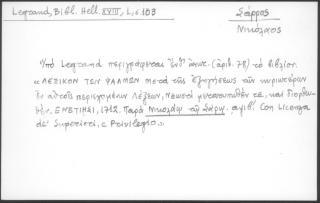 Legrand, Bibl. Hell. XVIII, I, σ. 103
Σάρρος
Νικόλαος
Ὑπὸ Legrand περιγράφεται (ἀριθ. 78) τὸ βιβλίον.
"ΛΕΞΙΚΟΝ ΤΩΝ ΨΑΛΜΩΝ μετὰ τῆς ἐξηγήσεως τῶν κυριωτέρων
ἐν αὐτοῖς περιεχομένων λέξεων, Νεωστὶ μετατυπωθέν τε, καὶ διορθω-
θέν. ΕΝΕΤΙΗΣΙ, 1712. Παρὰ Νικολάῳ τῷ Σάρῳ. αψιβ. Con Licenza
de' Superiori, e Privilegio".